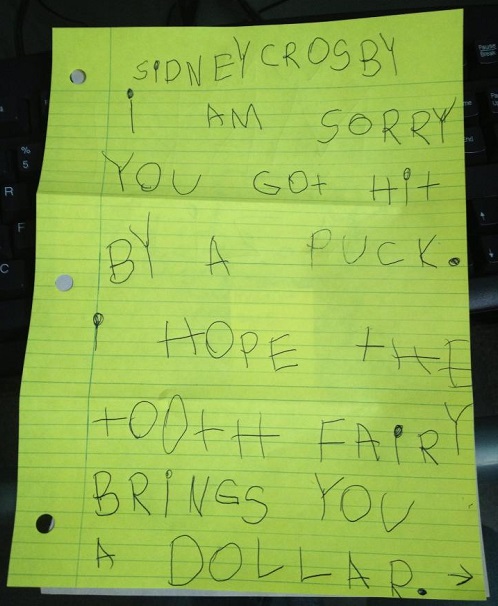 SiDNEY CROSBY
i AM SORRY
YOU GOt Hit
BY A PUCK.
i HOPE tHE
tOOtH FAiRY
BRiNGS YOU
A DOLLAR. →
%
5
R
F
C
Pause
Break